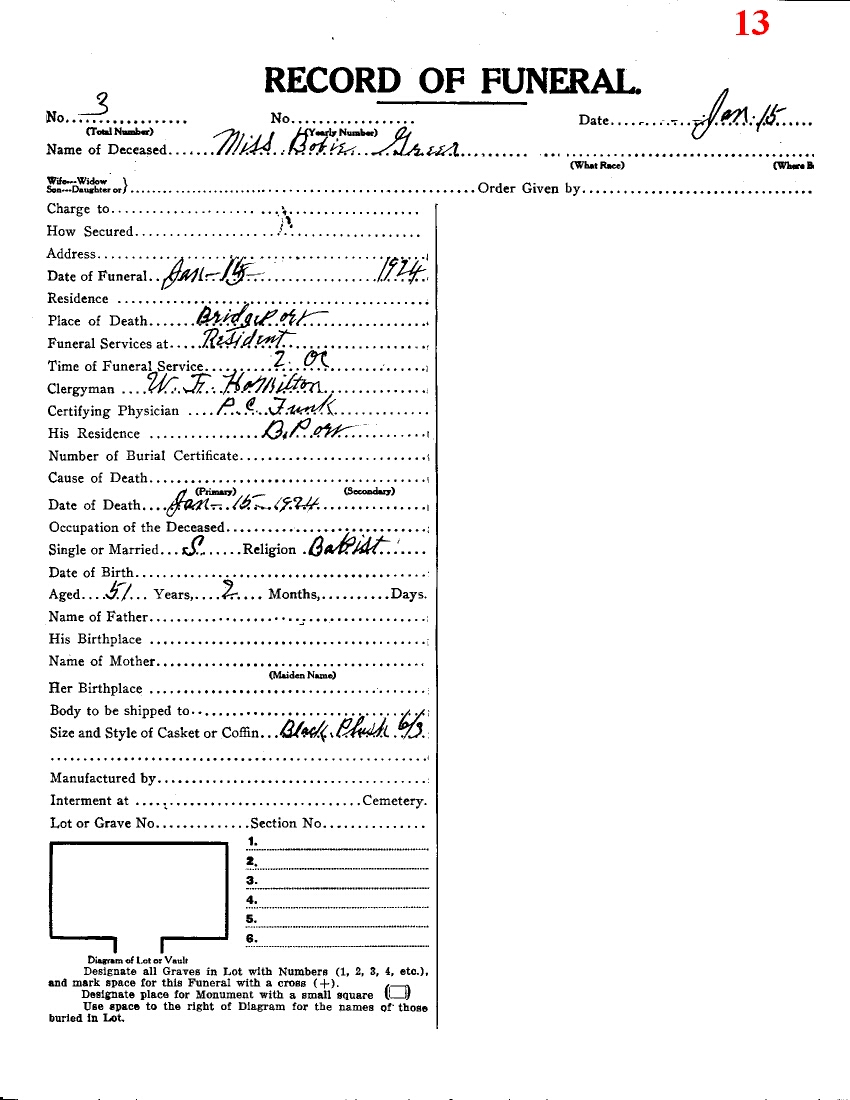 13
RECORD OF FUNERAL.
No. 3 No. Date Jan. 15
(Total Number) (Yearly Number)
Name of Deceased Miss Bobie Greer
(What Race) (Where B
Wife---Widow
Son---Daughter or} Order Given by
Charge to
How Secured
Address
Date of Funeral Jan-15- 1924
Residence
Place of Death Bridgeport
Funeral Services at Resident
Time of Funeral Service 2. OC
Clergyman W. F. Hamilton
Certifying Physician P. C. Funk
His Residence B. Port
Number of Burial Certificate
Cause of Death
(Primary) (Secondary)
Date of Death Jan-15-1924
Occupation of the Deceased
Single or Married S Religion Babtist
Date of Birth
Aged 51 Years, 2 Months, Days.
Name of Father
His Birthplace
Name of Mother
(Maiden Name)
Her Birthplace
Body to be shipped to
Size and Style of Casket or Coffin Black Plush 6/3
Manufactured by
Interment at Cemetery.
Lot or Grave No. Section No.
1.
2.
3.
4.
5.
6.
Diagram of Lot or Vault
Designate all Graves in Lot with Numbers (1, 2, 3, 4, etc.),
and mark space for this Funeral with a cross (+).
Designate place for Monument with a small square
Use space to the right of Diagram for the names of those
buried in Lot.